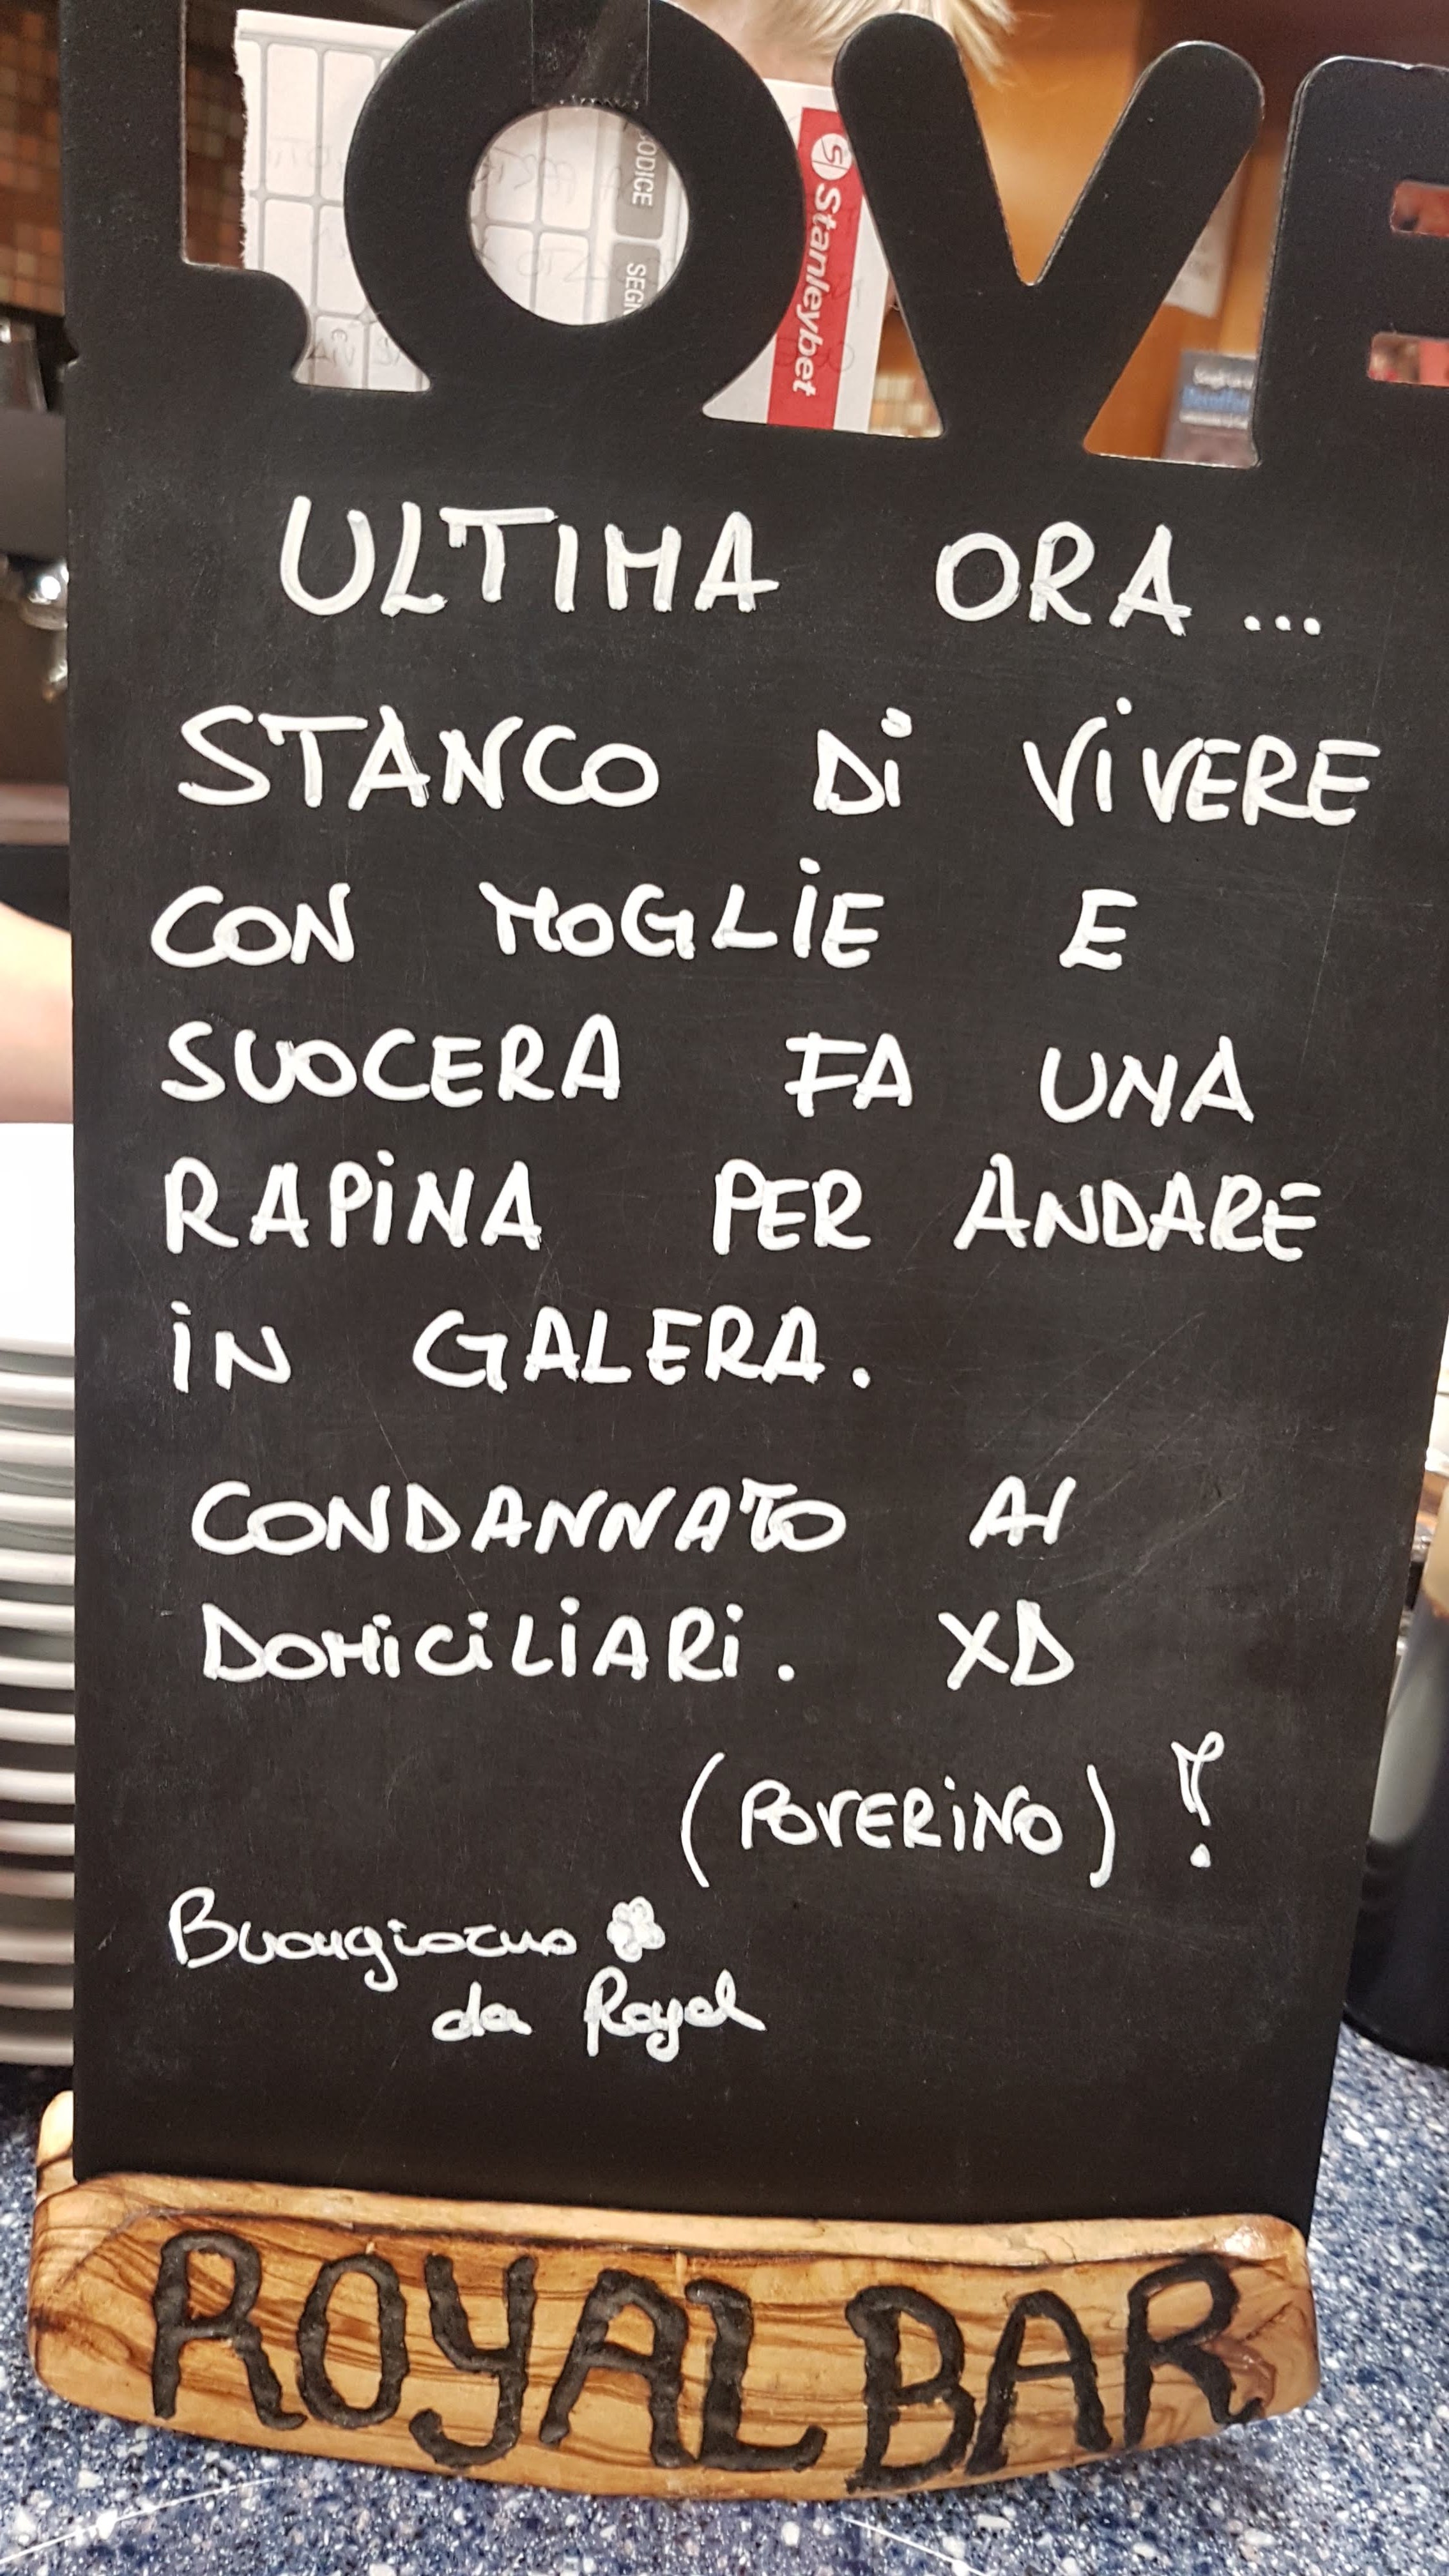 LOVE
ODICE
SEGN
Stanleybet
ULTIMA ORA...
STANCO Di ViVERE
CON MOGLiE E
SUOCERA FA UNA
RAPiNA PER ANDARE
iN GALERA.
CONDANNATO AI
DOMiCiLiARi. XD
(POVERiNO)!
Buongiorno
da Royal
ROYAL BAR